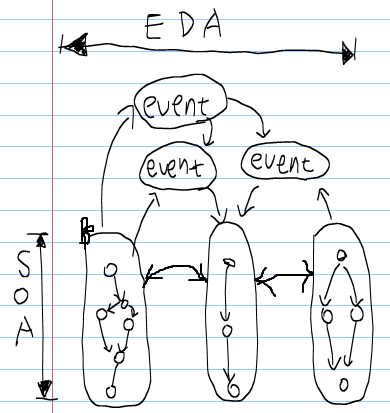 EDA
event
event
event
SOA